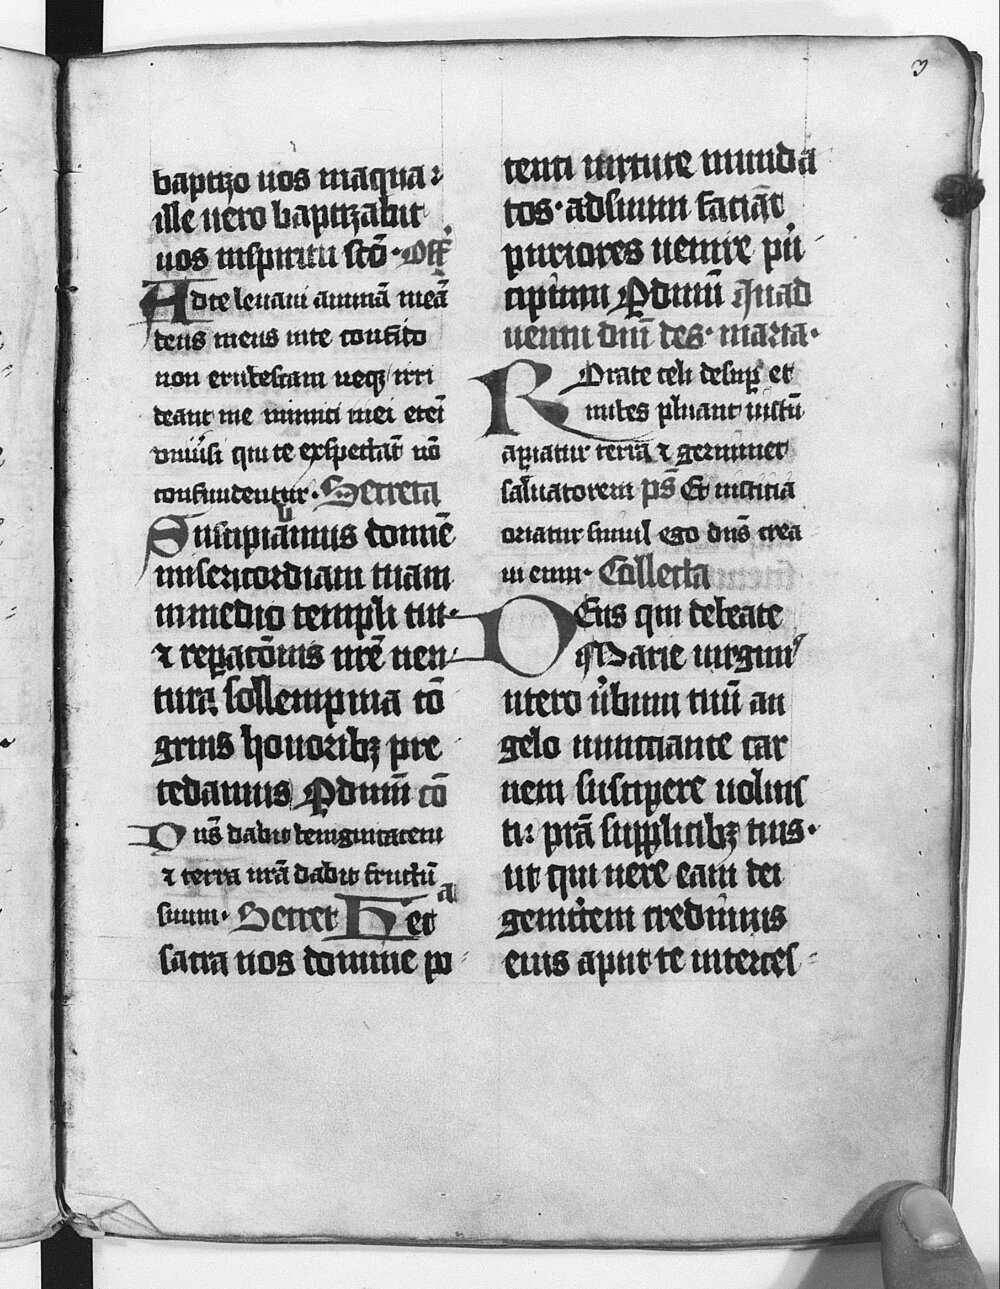 3
baptizo uos inaqua:
ille uero baptizabit
uos inspiritu sc̄o · Off̄
Adte leuaui animā meā
deus meus inte confido
non erubescam neqꝫ irri
deant me inimici mei eteī
vniūsi qui te exspectāt nō
confundentur · Secreta
Suscipiamus domine
misericordiam tuam
inmedio templi tui ·
⁊ reparac̄onis nr̄e uen
tura sollempnia cō
gruis honoribꝫ pre
cedamus Pdnm̄ cō
Dn̄s dabit benignitatem
⁊ terra nr̄a dabit fructū
suum · Secret Hec
sacra nos domine po
tenti uirtute munda
tos · adsuum faciāt
puriores uenire p̄n
cipium Pdnm̄ Quad
uentu dn̄i des · maria ·
Rorate celi desup̄ et
nubes pluant iustū
apiatur terra ⁊ germinet
saluatorem p̄s Et iusticia
oriatur simul ego dn̄s crea
ui eum · Collecta
Deus qui debeate
Marie uirginis
utero u̇bum tuū an
gelo nunciante car
nem suscipere uoluis
ti: pr̄a supplicibꝫ tuis ·
ut qui uere eam dei
genit̄cem credimus
eius aput te interces